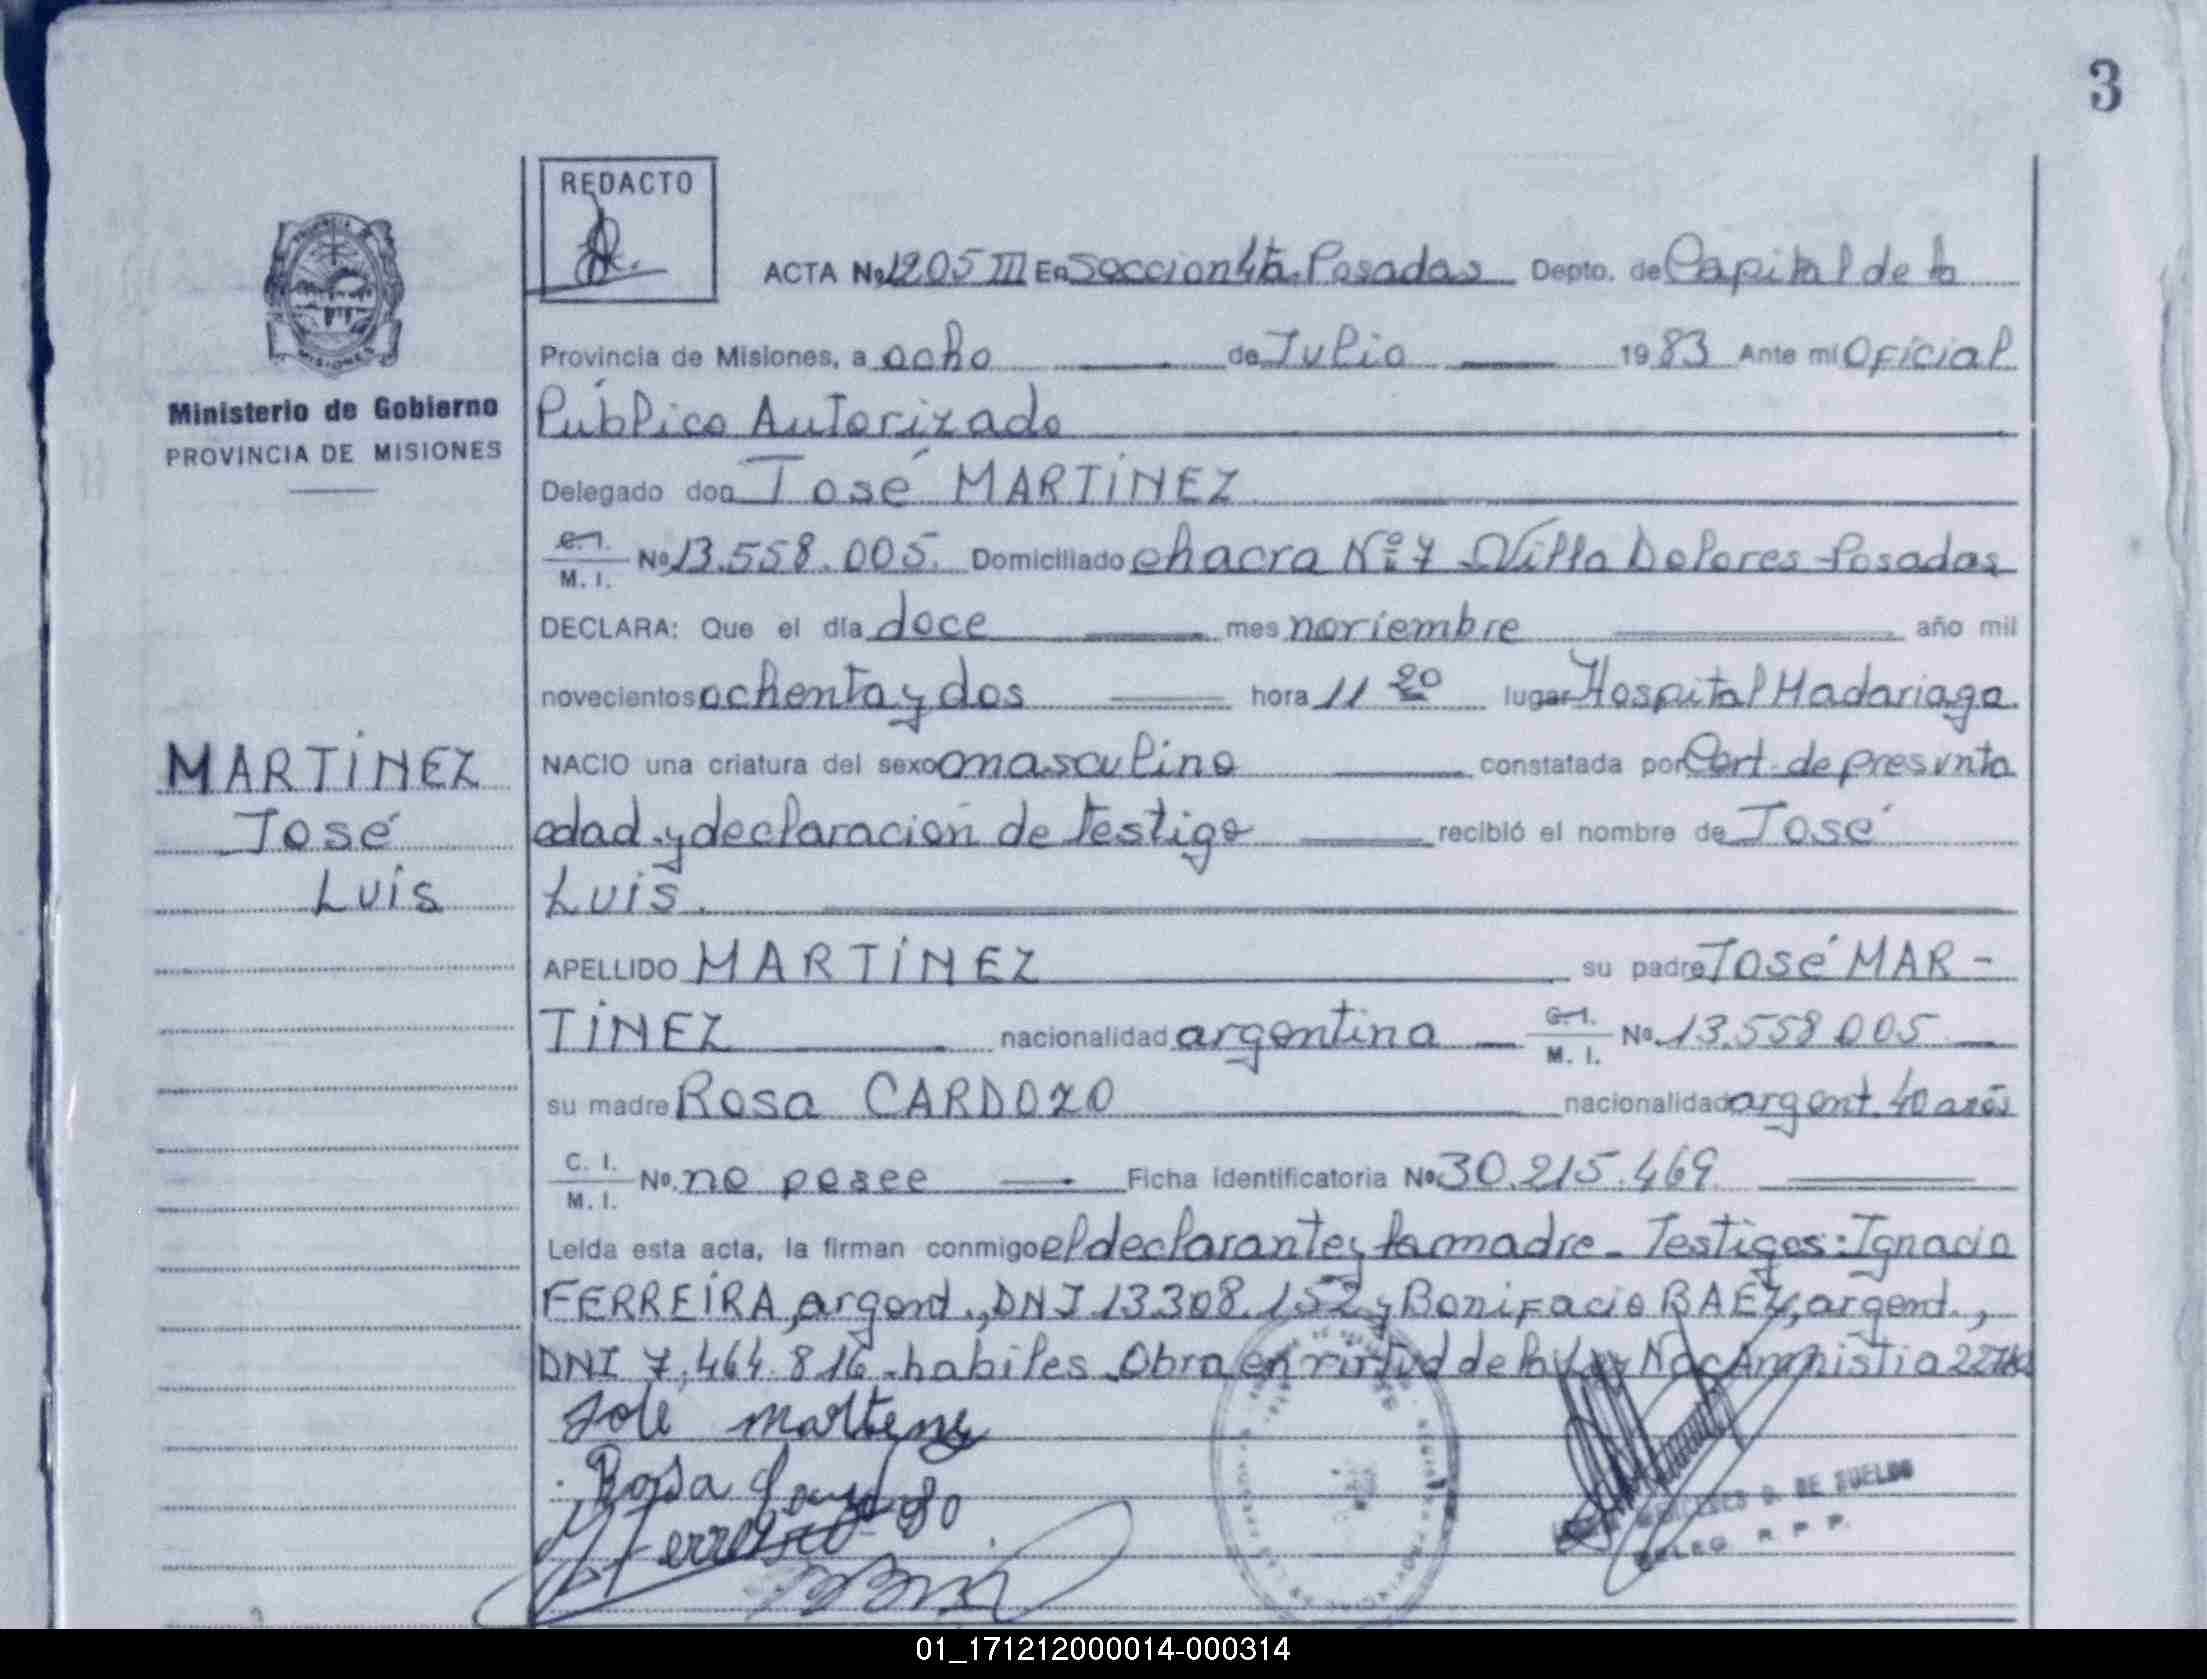 3
REDACTO
ACTA No 1205 III En Seccion 4ta. Posadas Depto. de Capital de la
Provincia de Misiones, a ocho de Julio 1983 Ante mi Oficial
Ministerio de Gobierno
PROVINCIA DE MISIONES
Público Autorizado
Delegado don José MARTíNEZ
C.I. M. I. No 13.558.005. Domiciliado chacra Nº 7 Villa Dolores Posadas
DECLARA: Que el día doce mes noviembre año mil
novecientos ochenta y dos hora 11 20 lugar Hospital Madariaga.
MARTíNEZ
José
Luis
NACIO una criatura del sexo masculino constatada por Cert. de presunta
edad y declaración de testigo recibió el nombre de José
Luis.
APELLIDO MARTíNEZ su padre José MAR-
TíNEZ nacionalidad argentina C.I. M. I. No. 13.558.005
su madre Rosa CARDOZO nacionalidad argent. 40 años
C. I. M. I. No. no posee Ficha identificatoria No 30.215.469
Leída esta acta, la firman conmigo el declarante y la madre. Testigos: Ignacio
FERREíRA, argent., DNI 13.308.152 y Bonifacio BAEZ, argent.,
DNI 7.464.816. habiles. Obra en virtud de la Ley Nac Amnistia
José Martinez
Rosa
DE SUELDO
DELEG R P P.
01_171212000014-000314